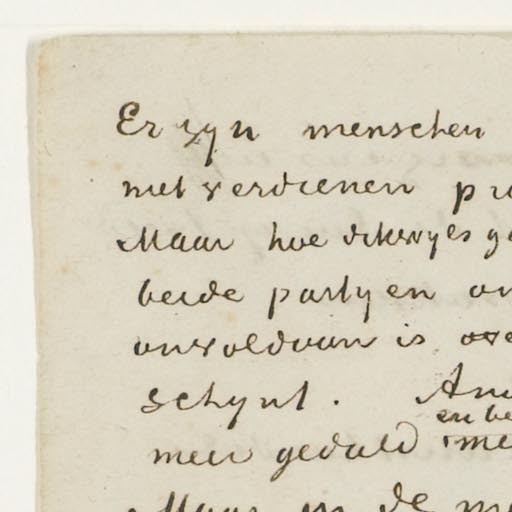 Er zyn menschen
met verdienen
Maar hoe dikwyls
beide partyen
onvoldaan is
schynt. An
en be
meer geduld me
Maar in de